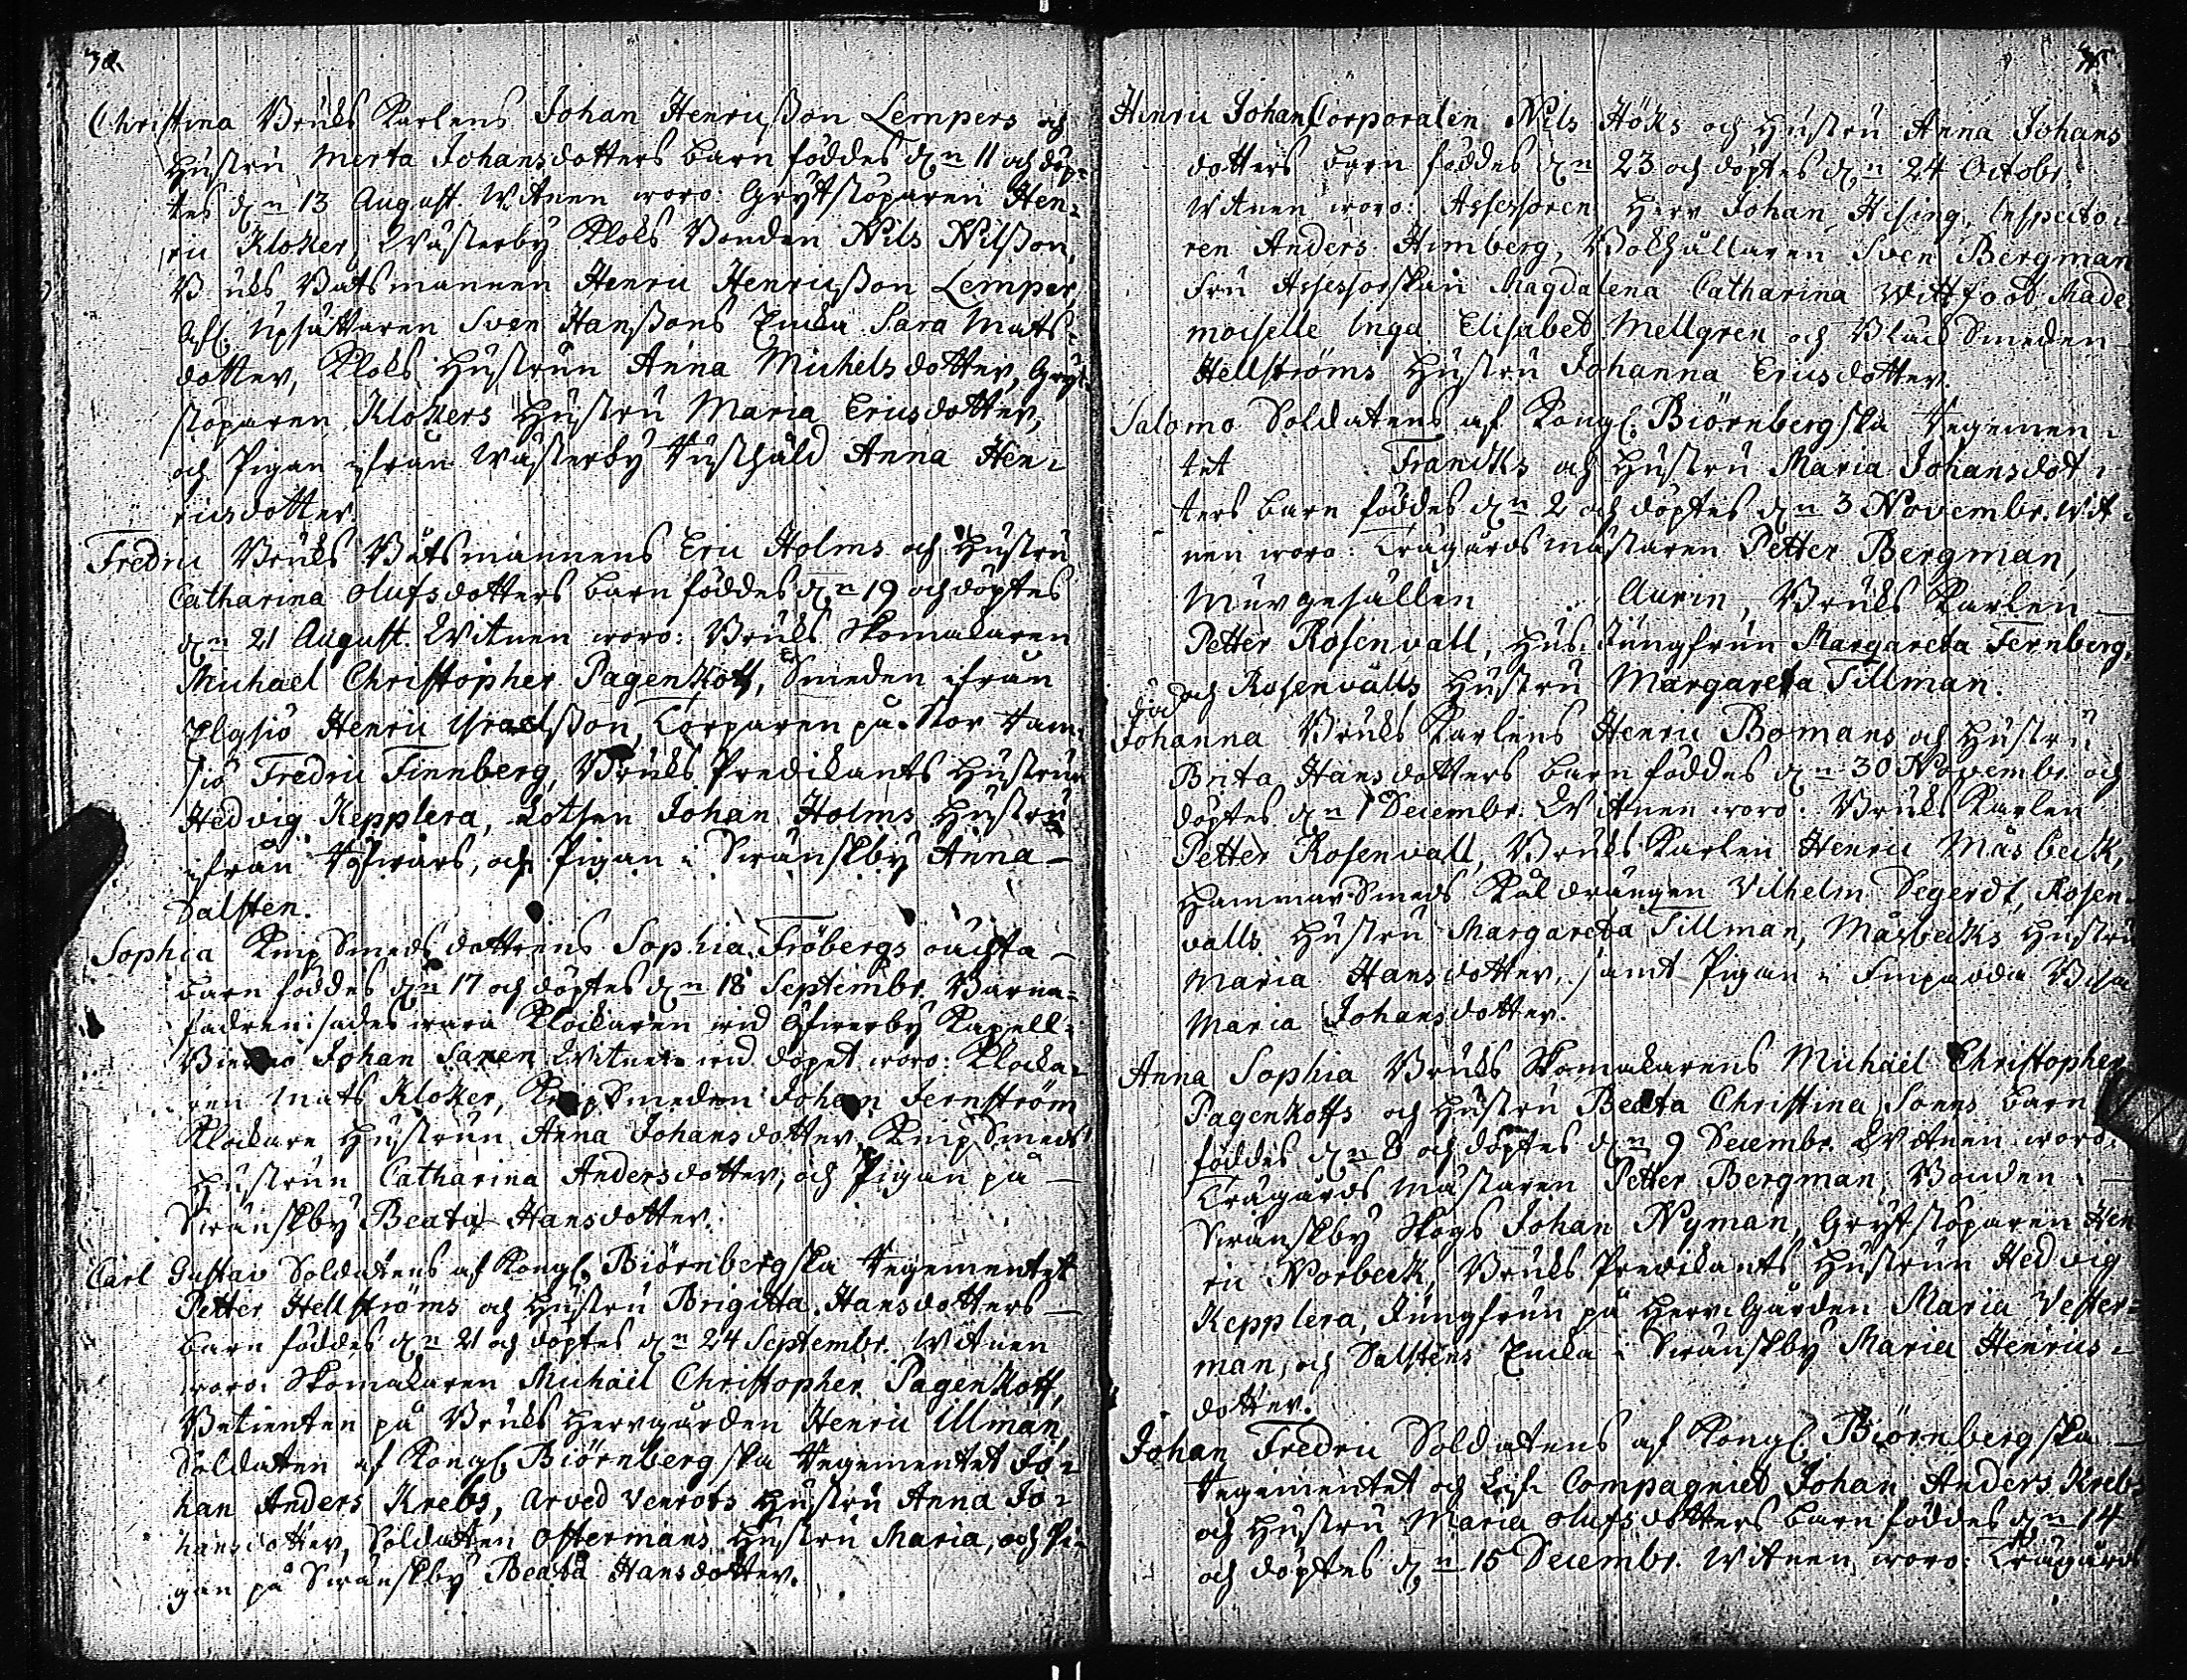 Christina Bruks Karlens Johan Henricsson Lempers och
hustru Merta Johansdotters barn föddes d n 11 och döp=
tes d n 13 August. Witnen woro: Grytstöparen Hen=
ric Kloker, Wästerby Kloks Bonden Nils Nilsson,
Bruks Båtsmannen Henric Henricsson Lemper,
Upsättaren Sven Hanssons Enka Sara Mats=
dotter, Kloks Hustrun Anna Michelsdotter, Gryt=
stöparen Klokers Hustru Maria Ericsdotter,
och Pigan ifrån Wästerby Rusthåld Anna Hen=
ricsdotter.
Fredric Bruks Båtsmannens Eric Holms och Hustru
Catharina Olufsdotters barn föddes d n 19 och döptes
d n 21 August. Witnen woro: Bruks Skomakaren
Michael Christopher Pagenkott, Smeden ifrån
Elgsiö Henric Israelsson, Torparen på Stor Ram=
siö Fredric Finnberg, Bruks Predikants Hustrun
Hedvig Kepplera, Lotsen Johan Holms Hustru
ifrån, och Pigan i Swänskby Anna
Dalsten.
Sophia Knip Smeds dottrens Sophia Fröbergs oächta
barn föddes d n 17 och döptes d n 18 Septembr. Barna=
fadren sades wara Klockaren wid Öfwerby Kapell
Johan Saxen Witnen wid dopet woro: Klocka=
ren Mats Kloker, Knip Smeden Johan Fernström
Klockare Hustrun Anna Johansdotter, Knip Smeds
Hustrun Catharina Andersdotter, och Pigan på
Swänskby Beata Hansdotter.
Carl Gustav Soldatens af Kongl. Biörnbergska Regementet
Petter Hellströms och Hustru Brigitta Hansdotters
barn föddes d n 21 och döptes d n 24 Septembr. Witnen
woro: Skomakaren Michäel Christopher Pagenkott,
Betienten på Bruks Herrgården Henric Ullman,
Soldaten af Kongl. Biörnbergska Regementet Jo=
han Anders Krebs, Arved Venrots Hustru Anna Jo=
hansdotter, Soldaten Ostermans Hustru Maria, och Pi=
gan på Swänskby Beata Hansdotter.
Henric Johan Corporalen Nils Höks och Hustru Anna Johans
dotters barn föddes d n 23 och döptes d n 24 Octobr.
Witnen woro: Assessoren Herr Johan Hising, Inspecto=
ren Anders Himberg, Bokhållaren Sven Bergman
Fru Assessorskan Magdalena Catharina Wittfoot, Made=
moiselle Inga Elisabet Mellgren och Smeden
Hellströms Hustru Johanna Ericsdotter.
Salomo Soldatens af Kongl. Biörnbergska Regemen=
tet Francks och Hustru Maria Johansdot=
ters barn föddes d n 2 och döptes d n 3 Novembr. Wit=
nen woro: Trägårdsmästaren Petter Bergman,
Murgesällen Aurin, Bruks Karlen
Petter Rosenvall, Hus Jungfrun Margareta Fernberg,
och Rosenvalls Hustru Margareta Tillman.
död
Johanna Bruks Karlens Henric Bomans och Hustru
Brita Hansdotters barn föddes d n 30 Novembr. och
döptes d n 1 Decembr. Witnen woro: Bruks Karlen
Petter Rosenvall, Bruks Karlen Henric Måsbeck,
Hammar Smeds Kåldrängen Vilhelm Segerdt, Rosen=
valls Hustru Margareta Tillman, Måsbecks Hustru
Maria Hansdotter, samt Pigan i
Maria Johansdotter.
Anna Sophia Bruks Skomakarens Michäel Christopher
Pagenkotts och Hustru Beata Christina barn
föddes d n 8 och döptes d n 9 Decembr. Witnen woro:
Trägårds Mästaren Petter Bergman, Bonden i
Swänskby Skogs Johan Nyman, Grytstöparen Hen
ric Norbeck, Bruks Predikants Hustrun Hedvig
Kepplera, Jungfrun på Herr Gården Maria Vester=
man, och Dalstens Enka i Swänskby Maria Henrics=
dotter.
Johan Fredric Soldatens af Kongl. Biörnbergska
Regementet och Lif Compagniet Johan Anders Krebs
och Hustru Maria Olufsdotters barn föddes d n 14
och döptes d n 15 Decembr. Witnen woro: Trägårds